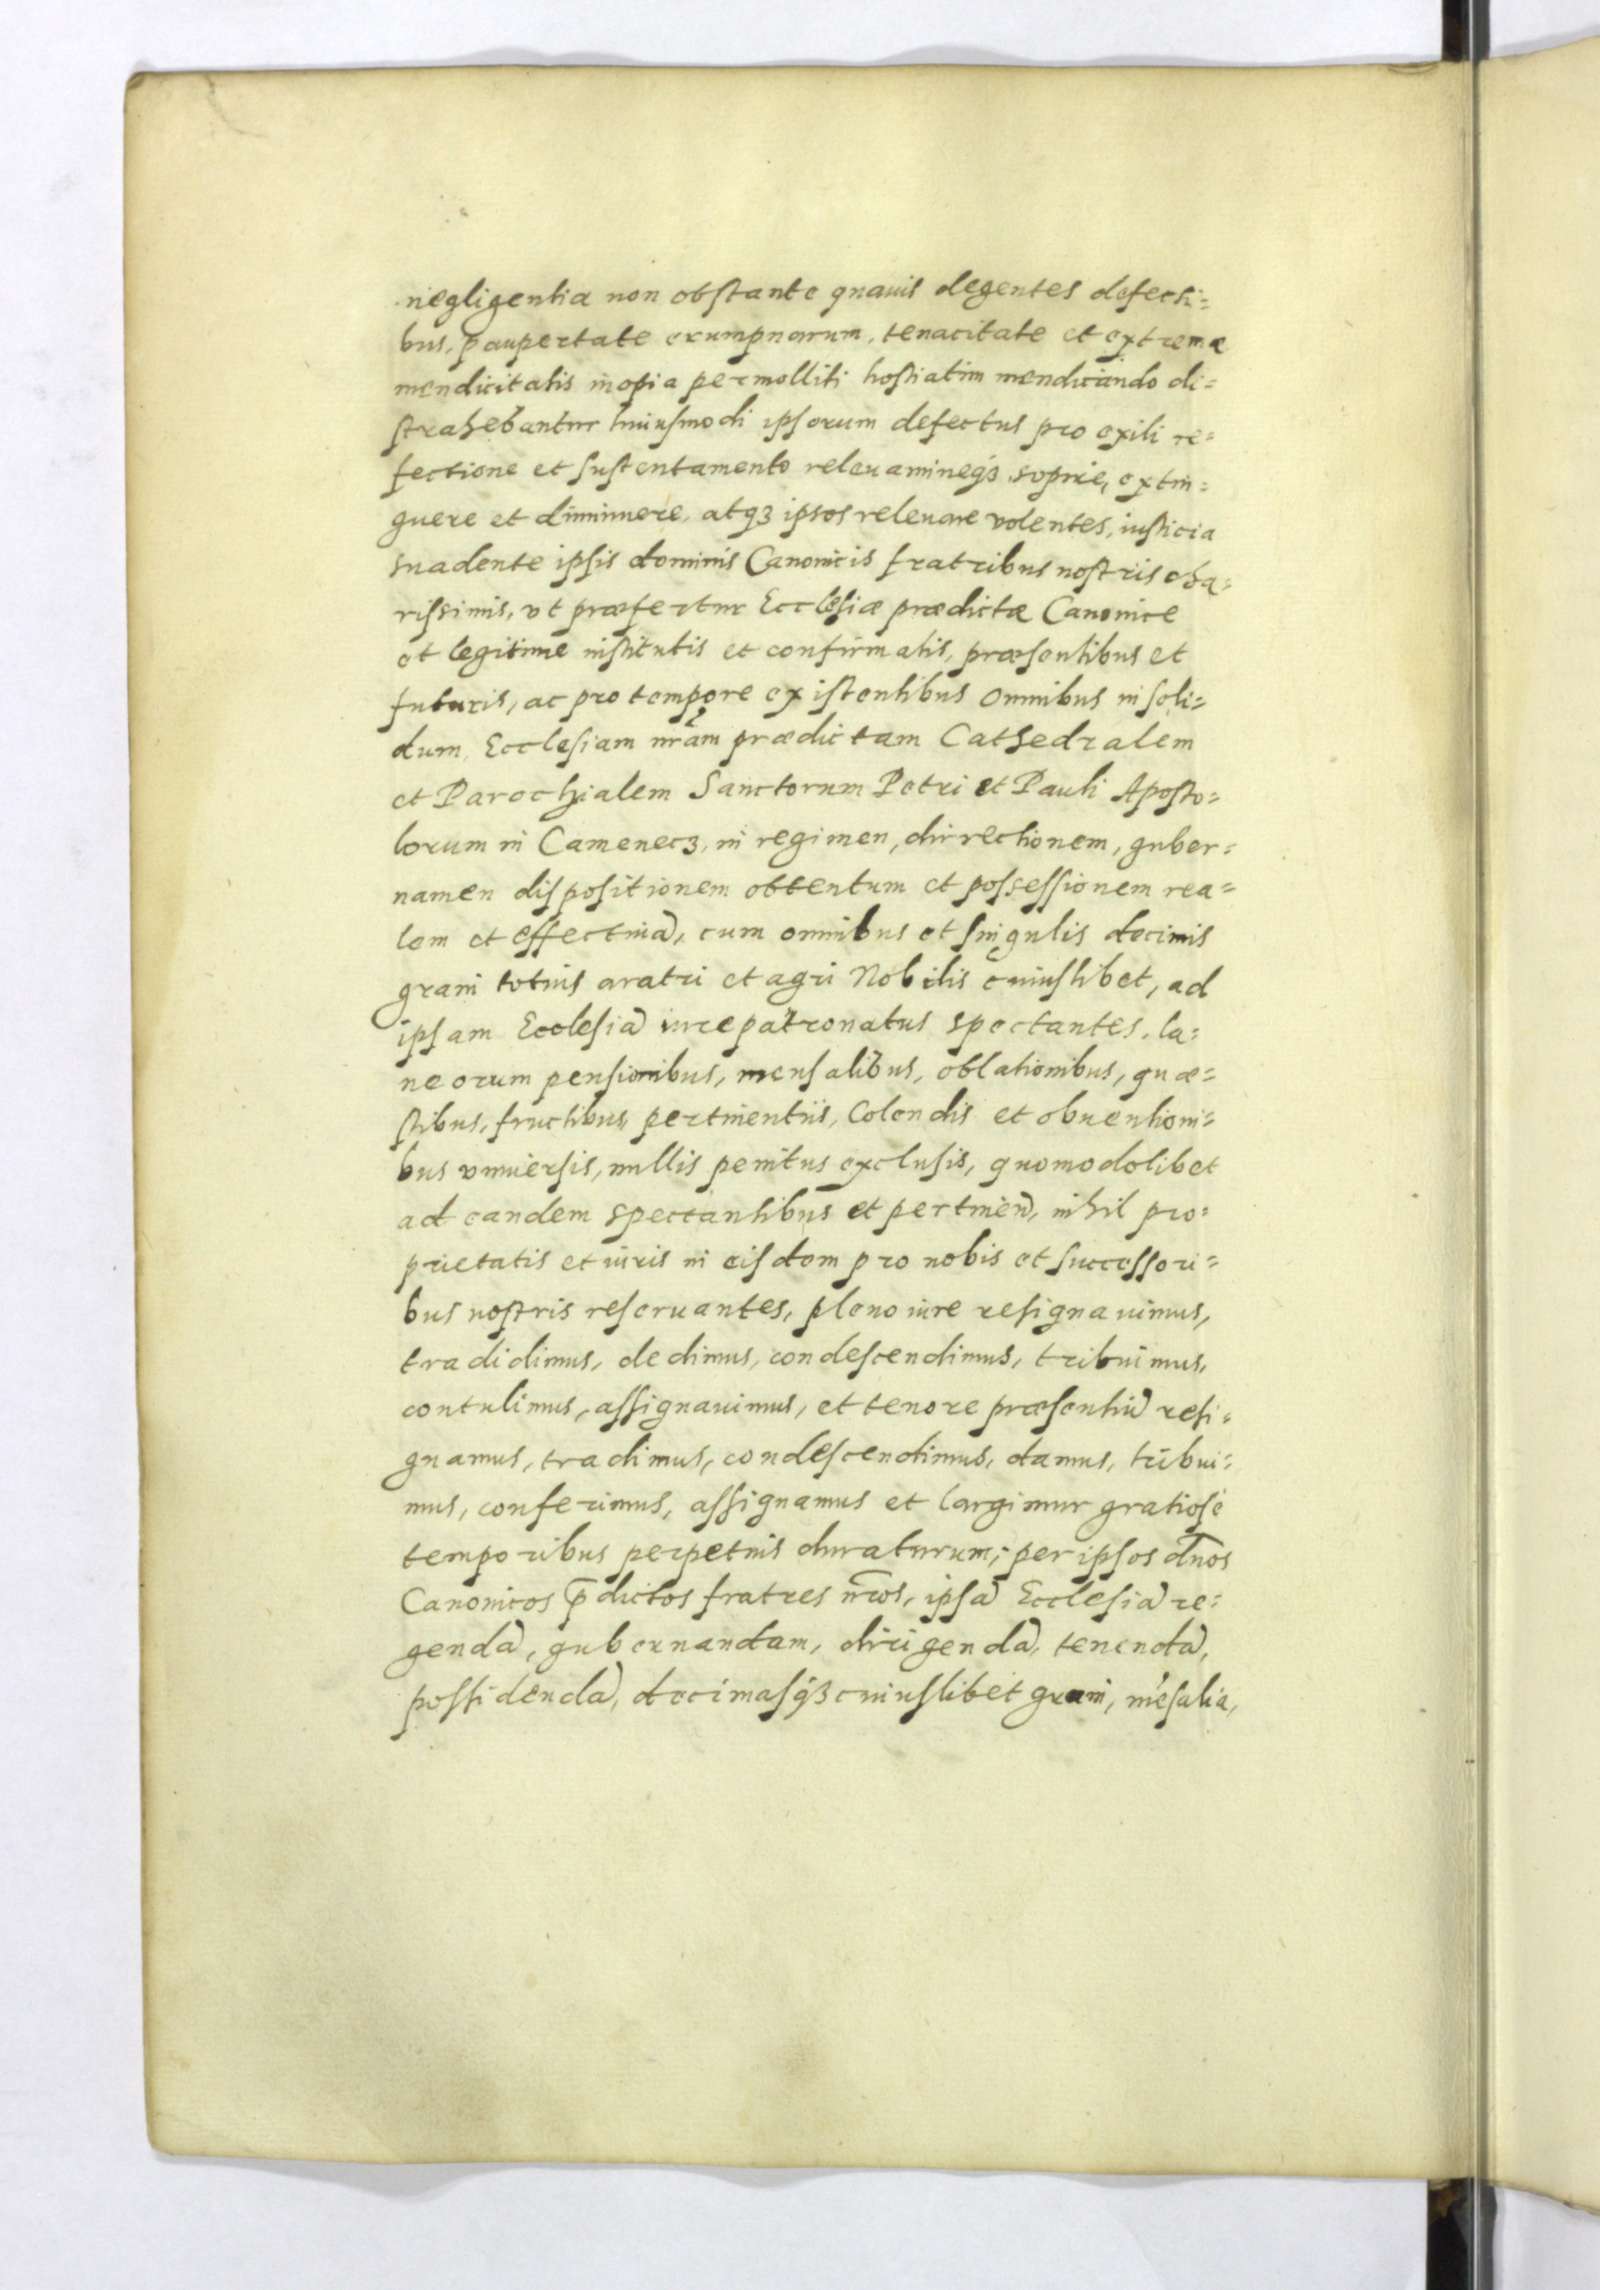 negligentia non obstante quauis degentes defecti=
bus, paupertate erumpnarum, tenacitate et extremæ
mendicitatis inopia permolliti hostiatim mendicando di=
strahebantur huiusmodi ipsorum defectus pro exili re=
fectione et sustentamento releuamineqȝ sopire, extin=
guere et diminuere, atqȝ ipsos releuare volentes, iusticia
suadente ipsis dominis Canonicis fratribus nostris cha=
rissimis, vt præfertur Ecclesiæ prædictæ Canonice
et legitime institutis et confirmatis, præsentibus et
futuris, ac pro tempore existentibus omnibus in soli=
dum, Ecclesiam nrãm prædictam Cathedralem
et Parochialem Sanctorum Petri et Pauli Aposto=
lorum in Camenecz, in regimen, dirrectionem, guber=
namen dispositionem obtentum et possessionem rea=
lem et effectiuã, cum omnibus et singulis decimis
grani totius aratri et agri Nobilis cuiuslibet, ad
ipsam Ecclesiã iure patronatus spectantes, la=
neorum pensionibus, mensalibus, oblationibus, quæ=
stibus, fructibus, pertinentiis, Colendis et obuentioni=
bus vniuersis, nullis penitus exclusis, quomodolibet
ad eandem spectantibus et pertineñ, nihil pro=
prietatis et iuris in eisdem pro nobis et successori=
bus nostris reseruantes, pleno iure resignauimus,
tradidimus, dedimus, condescendimus, tribuimus,
contulimus, assignauimus, et tenore præsentiũ resi=
gnamus, tradimus, condescendimus, damus, tribui=
mus, conferimus, assignamus et largimur gratiosè
temporibus perpetuis duraturum; per ipsos dños
Canonicos p̃dictos fratres nr̃os, ipsã Ecclesiã re=
gendã, gubernandam, dirigendã, tenendã,
possidendã, decimasqȝ cuiuslibet grani, mẽsalia,